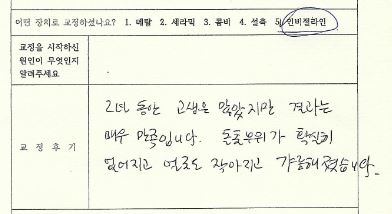 어떤 장치로 교정하셨나요? 1. 메탈 2. 세라믹 3. 콤비 4. 설측 5. 인비절라인
교정을 시작하신
원인이 무엇인지
알려주세요
교 정 후 기
2년 동안 고생은 많았지만 결과는
매우 만족입니다. 돌출부위가 확실히
없어지고 얼굴도 작아지고 갸름해졌습니다.